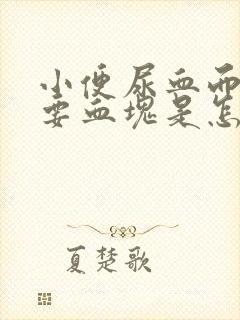 小便尿血而
要血块是怎
夏楚歌